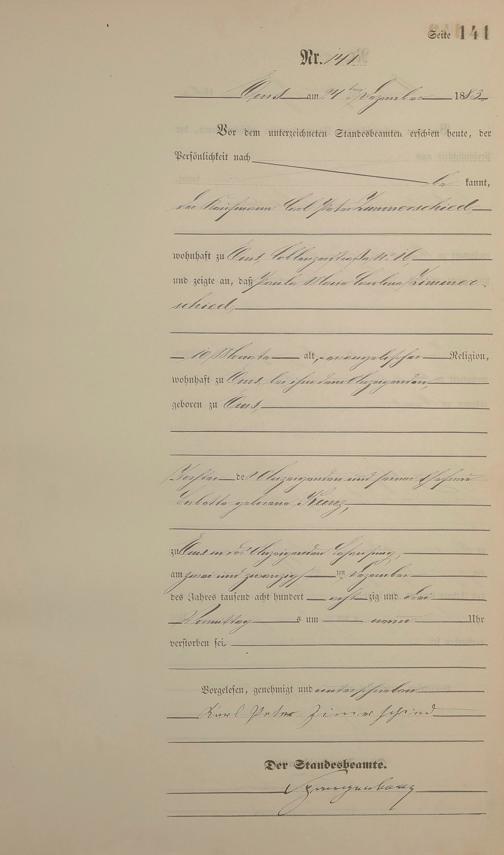 Seite 141
Nr. 141
Ems am 24ten Dezember 1883
Vor dem unterzeichneten Standesbeamten erschien heute, der
Persönlichkeit nach
be kannt,
der Kaufmann Carl Peter Zimmerschied
wohnhaft zu Ems Coblenzerstraße No
und zeigte an, daß Paula Maria Carolina Zimmer-
schied,
10 Monate alt, evangelischer Religion,
wohnhaft zu Ems, bei ihm dem Anzeigenden
geboren zu Ems,
Tochter des Anzeigenden und seiner Ehefrau
geborene Kunz,
zu Ems in des Anzeigenden Behausung,
am zwei und zwanzigsten Dezember
des Jahres tausend acht hundert acht zig und drei
Vormittags um neun Uhr
verstorben sei.
Vorgelesen, genehmigt und unterschrieben
Karl Peter Zimerschied
Der Standesbeamte.
Spangenberg